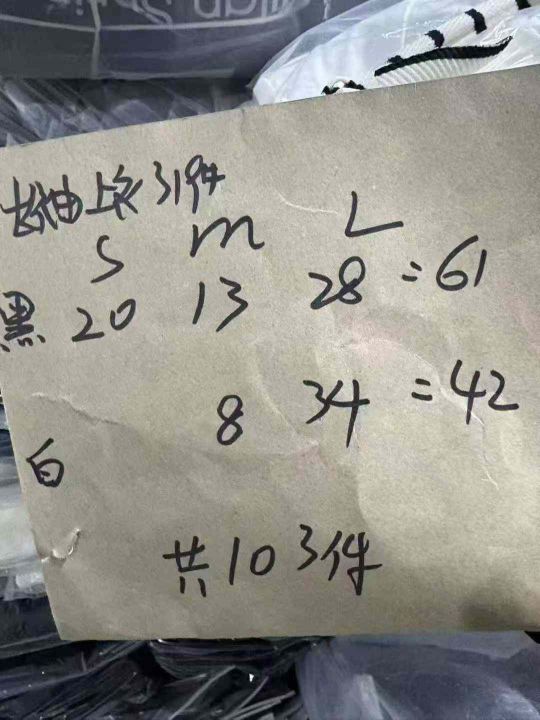 长袖上衣 319件
S m L
黑 20 13 28 = 61
8 34 = 42
白
共103件